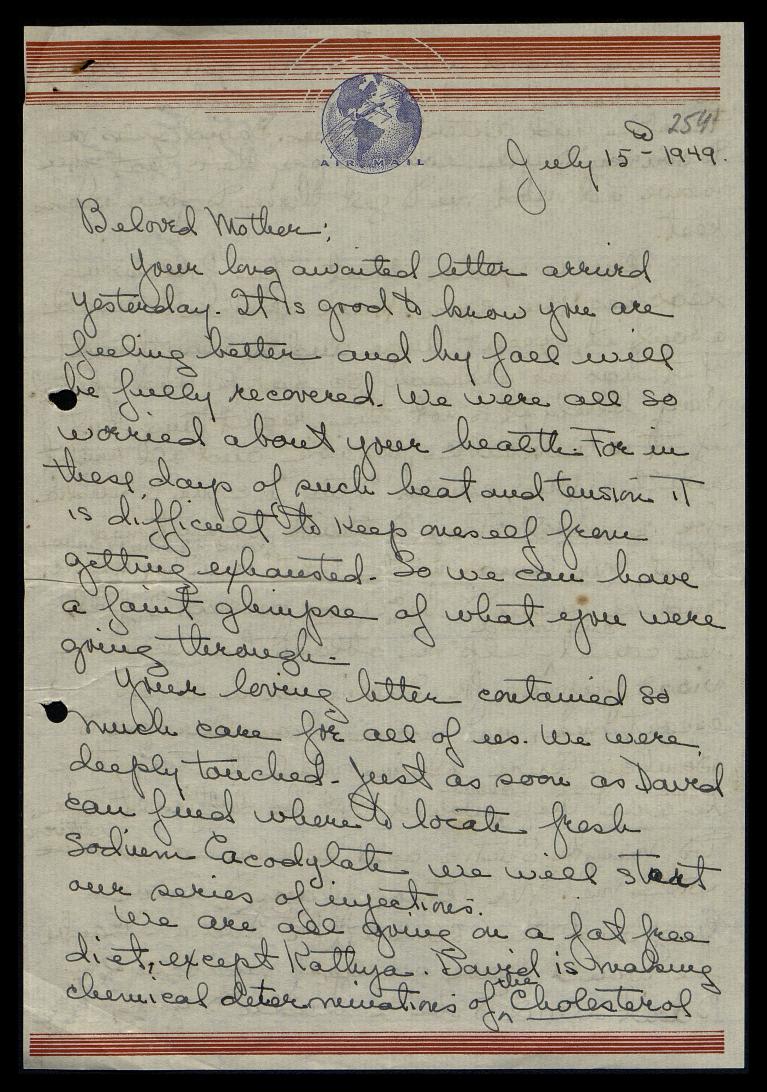 AIR MAIL
254
July 15 - 1949.
Beloved Mother;
Your long awaited letter arrived
yesterday. It is good to know you are
feeling better and by fall will
be fully recovered. We were all so
worried about your health. For in
these days of such heat and tension it
is difficult to keep oneself from
getting exhausted. So we can have
a faint glimpse of what you were
going through.
Your loving letter contained so
much care for all of us. We were
deeply touched. Just as soon as David
can find where to locate fresh
Sodium Cacodylate we will start
our series of injections.
We are all going on a fat free
diet, except Kathya. David is making
chemical determinations of the Cholesterol